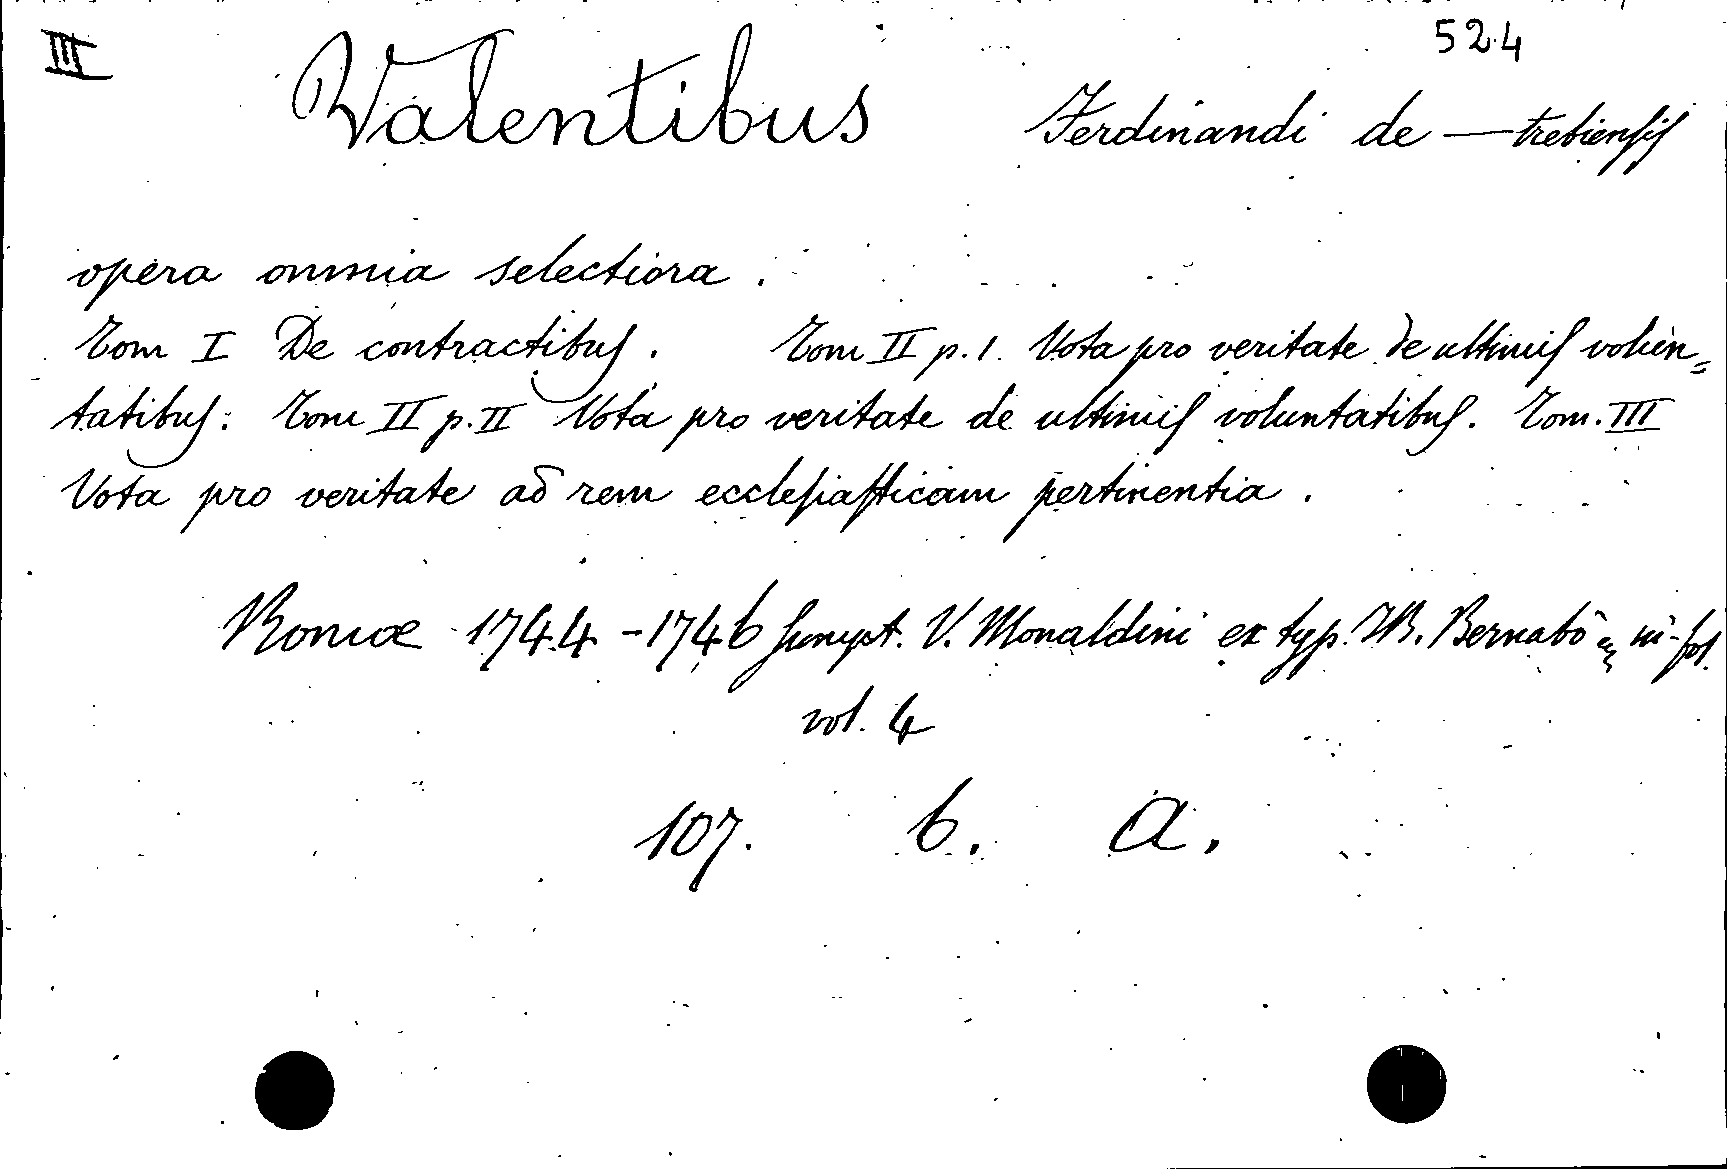 III 524
Valentibus Ferdinandi de — trebiensis
opera omnia selectiora.
Tom I De contractibus. Tom II p. 1. Vota pro veritate de ultimis volun=
tatibus: Tom II p. II Vota pro veritate de ultimis voluntatibus. Tom. III
Vota pro veritate ad rem ecclesiasticam pertinentia.
Romae 1744-1746 sumpt. V. Monaldini ex typ. Bernabò in-fol.
vol. 4
107. b. a.